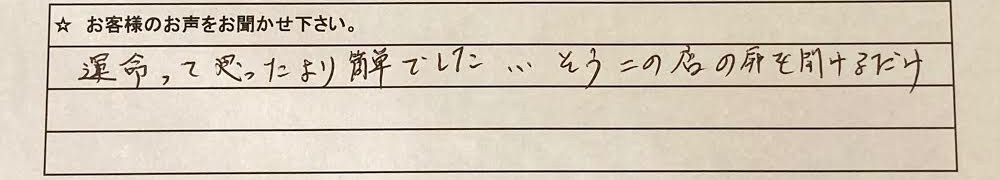 ☆ お客様のお声をお聞かせ下さい。
運命って思ったより簡単でした … そうこの店の扉を開けるだけ